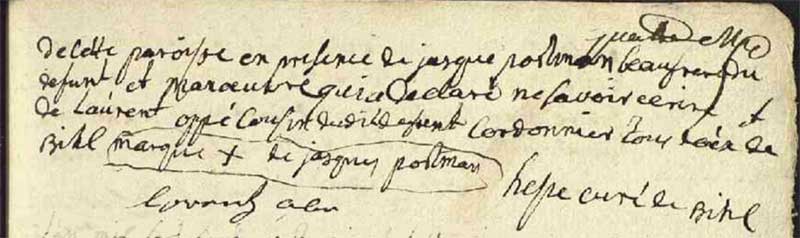 de cette paroisse en presence de jasque postman beaufrere du
defunt et manoeuvre qui a declaré ne savoir ecrire et
de Laurent oppé Cousin dudi defunt Cordonnier tous deux de
Bihl marque + de jasques postman
hesse curé de Bihl